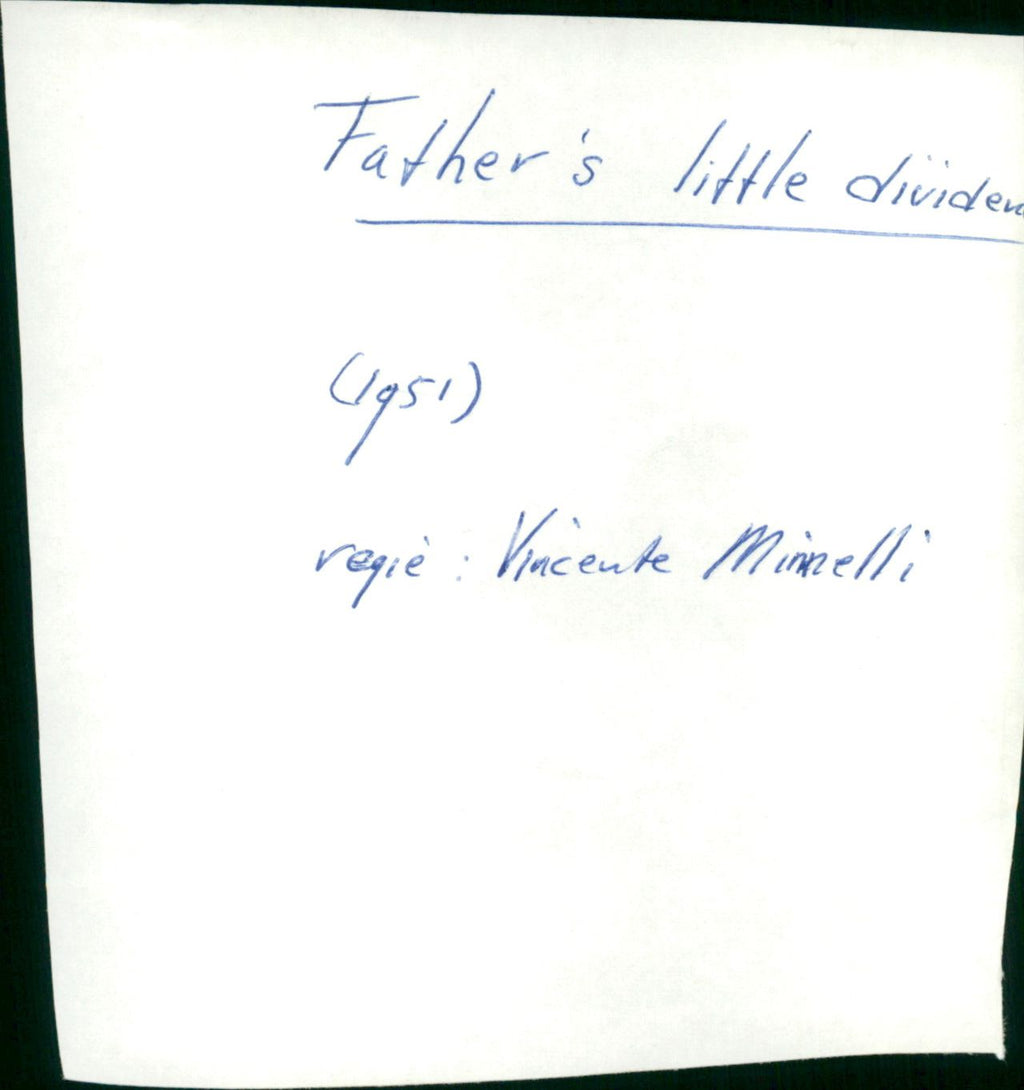 Father's little dividen
(1951)
regie : Vincente Minnelli